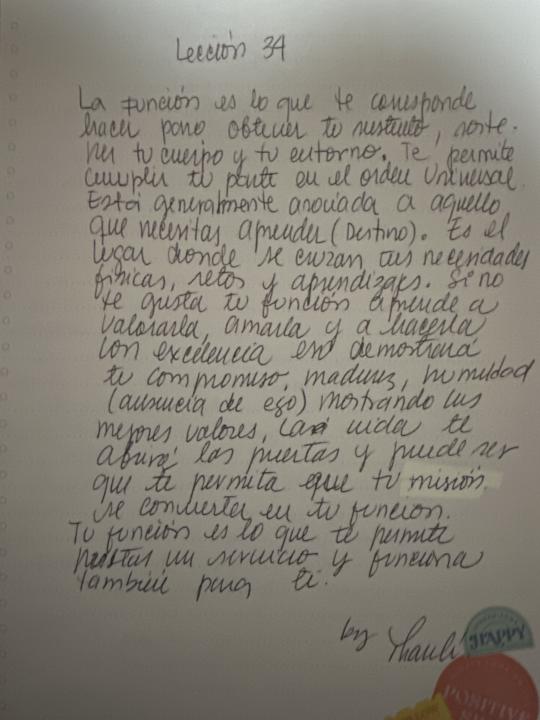 Lección 34
La función es lo que te corresponde
hacer para obtener tu sustento, soste-
ner tu cuerpo y tu entorno. Te permite
cumplir tu parte en el orden Universal.
Está generalmente asociada a aquello
que necesitas aprender (Destino). Es el
lugar donde se cruzan tus necesidades
físicas, retos y aprendizajes. Si no
te gusta tu función aprende a
valorarla, amarla y a hacerla
con excelencia eso demostrará
tu compromiso, madurez, humildad
(ausencia de ego) mostrando tus
mejores valores, la vida te
abrirá las puertas y puede ser
que te permita que tu misión
se convierta en tu función.
Tu función es lo que te permite
prestar un servicio y funciona
también para ti.
by
HAPPY
POSITIVE